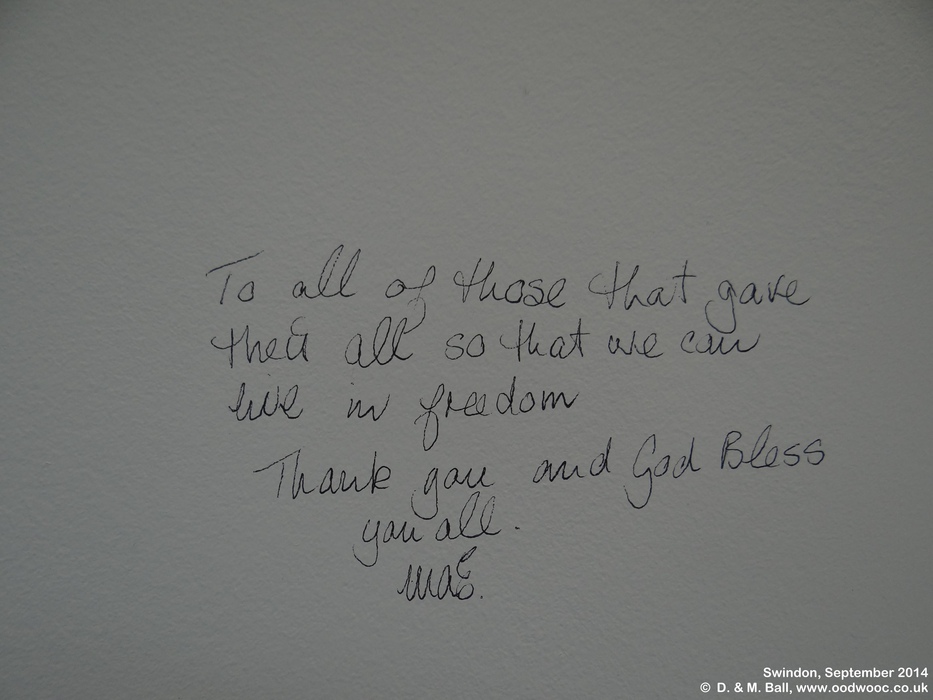 To all of those that gave
their all so that we can
live in freedom
Thank you and God Bless
you all.
Swindon, September 2014
© D. & M. Ball, www.oodwooc.co.uk